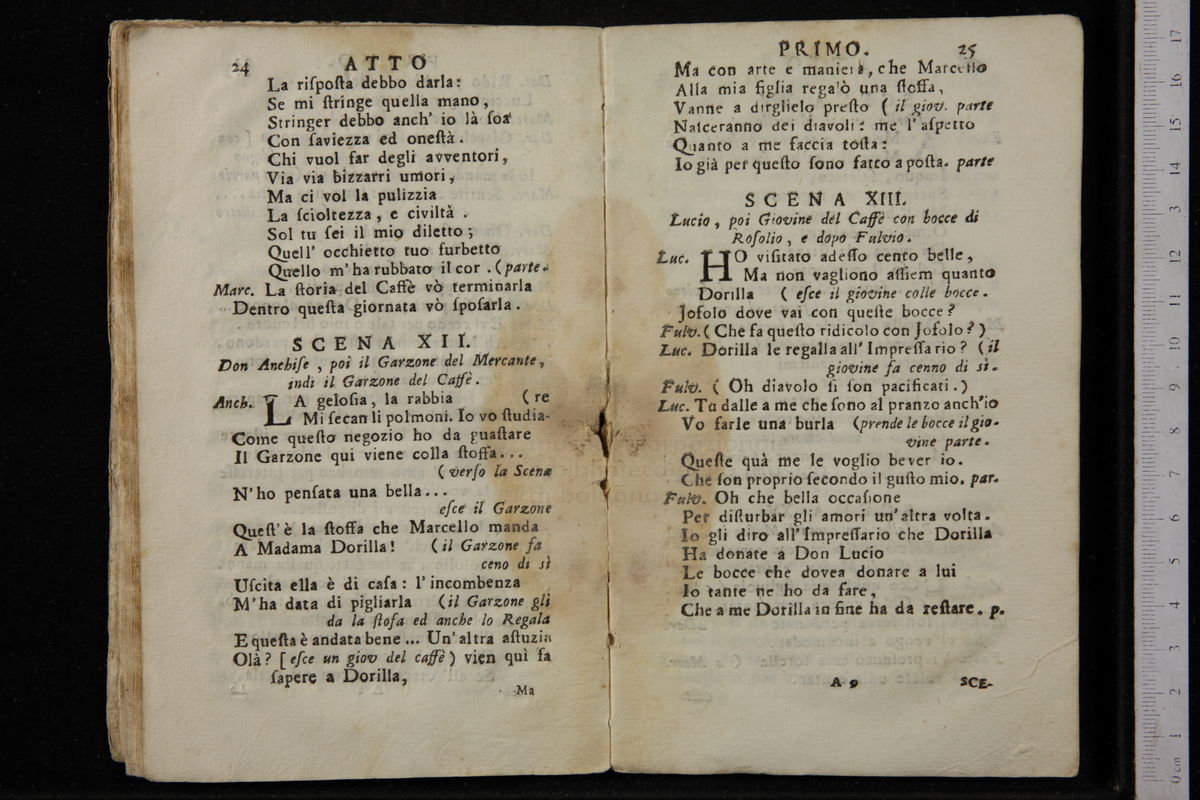 24 ATTO
La riſpoſta debbo darla:
Se mi ſtringe quella mano,
Stringer debbo anch' io là ſoa
Con ſaviezza ed oneſtà.
Chi vuol far degli avventori,
Via via bizzarri umori,
Ma ci vol la pulizzia
La ſcioltezza, e civiltà.
Sol tu ſei il mio diletto;
Quell' occhietto tuo furbetto
Quello m'ha rubbato il cor. (parte.
Marc. La ſtoria del Caffè vò terminarla
Dentro queſta giornata vò ſpoſarla.
SCENA XII.
Don Anchiſe, poi il Garzone del Mercante,
indi il Garzone del Caffè.
Anch. LA geloſia, la rabbia (re
Mi ſecan li polmoni. Io vo ſtudia-
Come queſto negozio ho da guaſtare
Il Garzone qui viene colla ſtoffa...
(verſo la Scena
N'ho penſata una bella...
eſce il Garzone
Queſt'è la ſtoffa che Marcello manda
A Madama Dorilla! (il Garzone fa
ceno di sì
Uſcita ella è di caſa: l'incombenza
M'ha data di pigliarla (il Garzone gli
da la ſtofa ed anche lo Regala
E queſta è andata bene... Un'altra aſtuzia
Olà? [eſce un giov del caffè) vien quì fa
ſapere a Dorilla,
Ma
PRIMO. 25
Ma con arte e maniera, che Marcello
Alla mia figlia regalò una ſtoffa,
Vanne a dirglielo preſto (il giov. parte
Naſceranno dei diavoli: me l'aſpetto
Quanto a me faccia toſta:
Io già per queſto ſono fatto a poſta. parte
SCENA XIII.
Lucio, poi Giovine del Caffè con bocce di
Roſolio, e dopo Fulvio.
Luc. HO viſitato adeſſo cento belle,
Ma non vagliono aſſiem quanto
Dorilla (eſce il giovine colle bocce.
Joſolo dove vai con queſte bocce?
Fulv. (Che fa queſto ridicolo con Joſolo?)
Luc. Dorilla le regalla all' Impreſſario? (il
giovine fa cenno di sì.
Fulv. (Oh diavolo ſi ſon pacificati.)
Luc. Tu dalle a me che ſono al pranzo anch'io
Vo farle una burla (prende le bocce il gio-
vine parte.
Queſte quà me le voglio bever io.
Che ſon proprio ſecondo il guſto mio. par.
Fulv. Oh che bella occaſione
Per diſturbar gli amori un'altra volta.
Io gli diro all'Impreſſario che Dorilla
Ha donate a Don Lucio
Le bocce che dovea donare a lui
Io tante ne ho da fare,
Che a me Dorilla in fine ha da reſtare. p.
A 9 SCE-